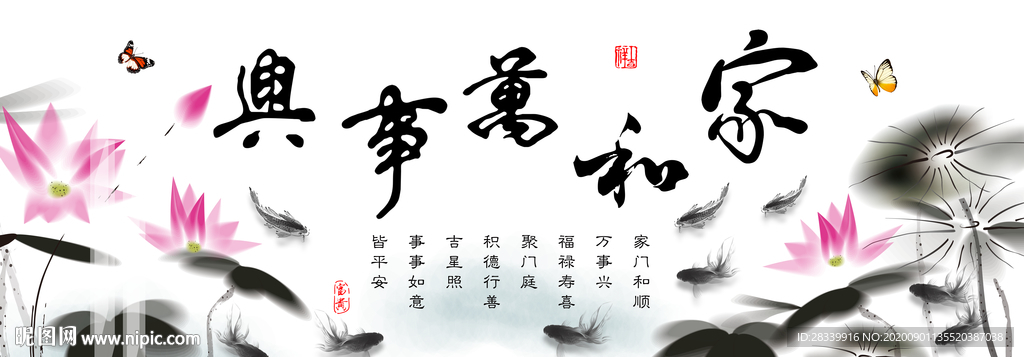 家和萬事興
家门和顺
万事兴
福禄寿喜
聚门庭
积德行善
吉星照
事事如意
皆平安
昵图网 www.nipic.com
ID:28339916 NO:20200901135520387038